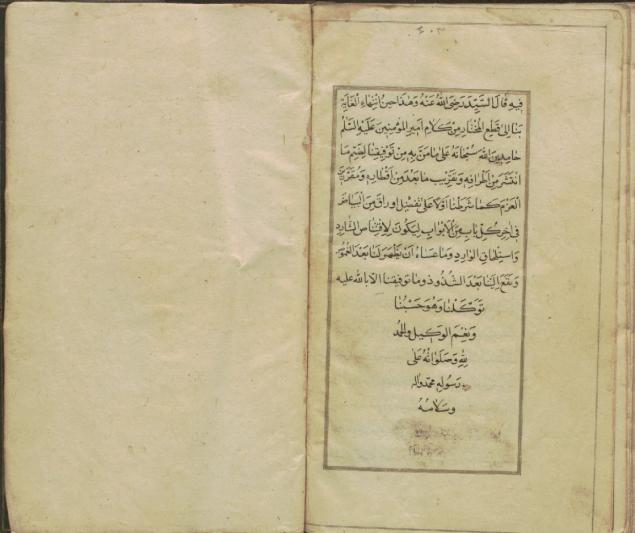 ٤٠٣
فيه قال السَّيِّد رَضِيَ اللهُ عَنْهُ وَهٰذا حِينُ انْتِهاءِ الْغَايَةِ
بِنا اِلى قَطْعِ الْمُخْتارِ مِنْ كَلامِ اَميرِ الْمُؤْمِنينَ عَلَيْهِ السَّلٰمُ
حامِدينَ اللهَ سُبْحانَهُ عَلى ما مَنَّ بِهِ مِنْ تَوْفيقِنا لِضَمِّ مَا
انْتَشَرَ مِنْ اَطْرافِهِ وَتَقْريبِ ما بَعُدَ مِنْ اَقْطارِهِ وَمُقَرِّرينَ
الْعَزْمَ كَما شَرَطْنا اَوَّلاً عَلى تَفْضيلِ اوراقٍ مِنَ الْبَياضِ
فى اٰخِرِ كُلِّ بابٍ مِنَ الْاَبْوابِ لِيَكُونَ لِاقْتِناصِ الشّارِدِ
وَاسْتِلْحاقِ الْوارِدِ وَما عَساهُ اَنْ يَظْهَرَ لَنا بَعْدَ الْغُمُوضِ
وَيَقَعَ اِلَيْنا بَعْدَ الشُّذُوذِ وما تَوْفيقُنا الّا بالله عليه
تَوَكَّلْنا وَهُوَ حَسْبُنا
وَنِعْمَ الْوَكيلُ والحمد
لِلّٰهِ وَصَلَواتُهُ عَلى
رَسُولِهِ محمّد واله
وسَلامُهُ